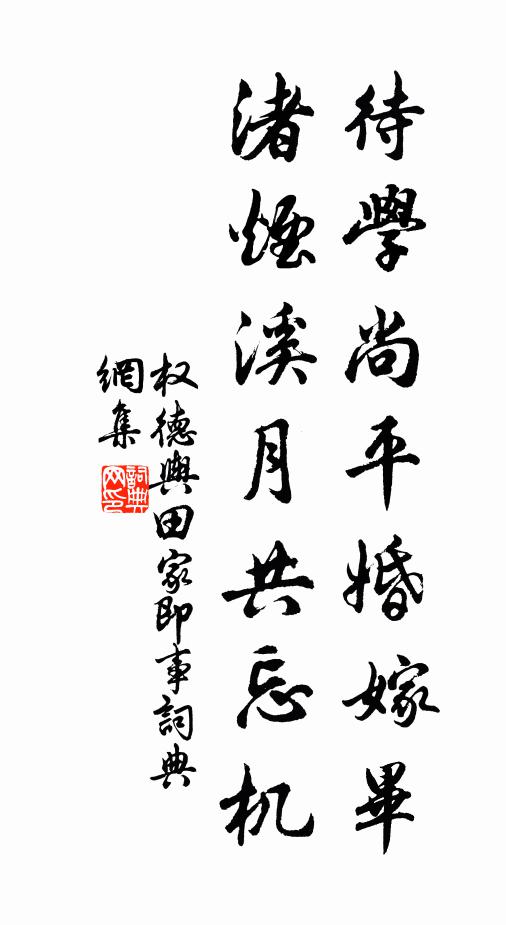 待學尚平婚嫁畢
渚煙溪月共忘机
权德輿田家即事詞典
網集
詞典
网印